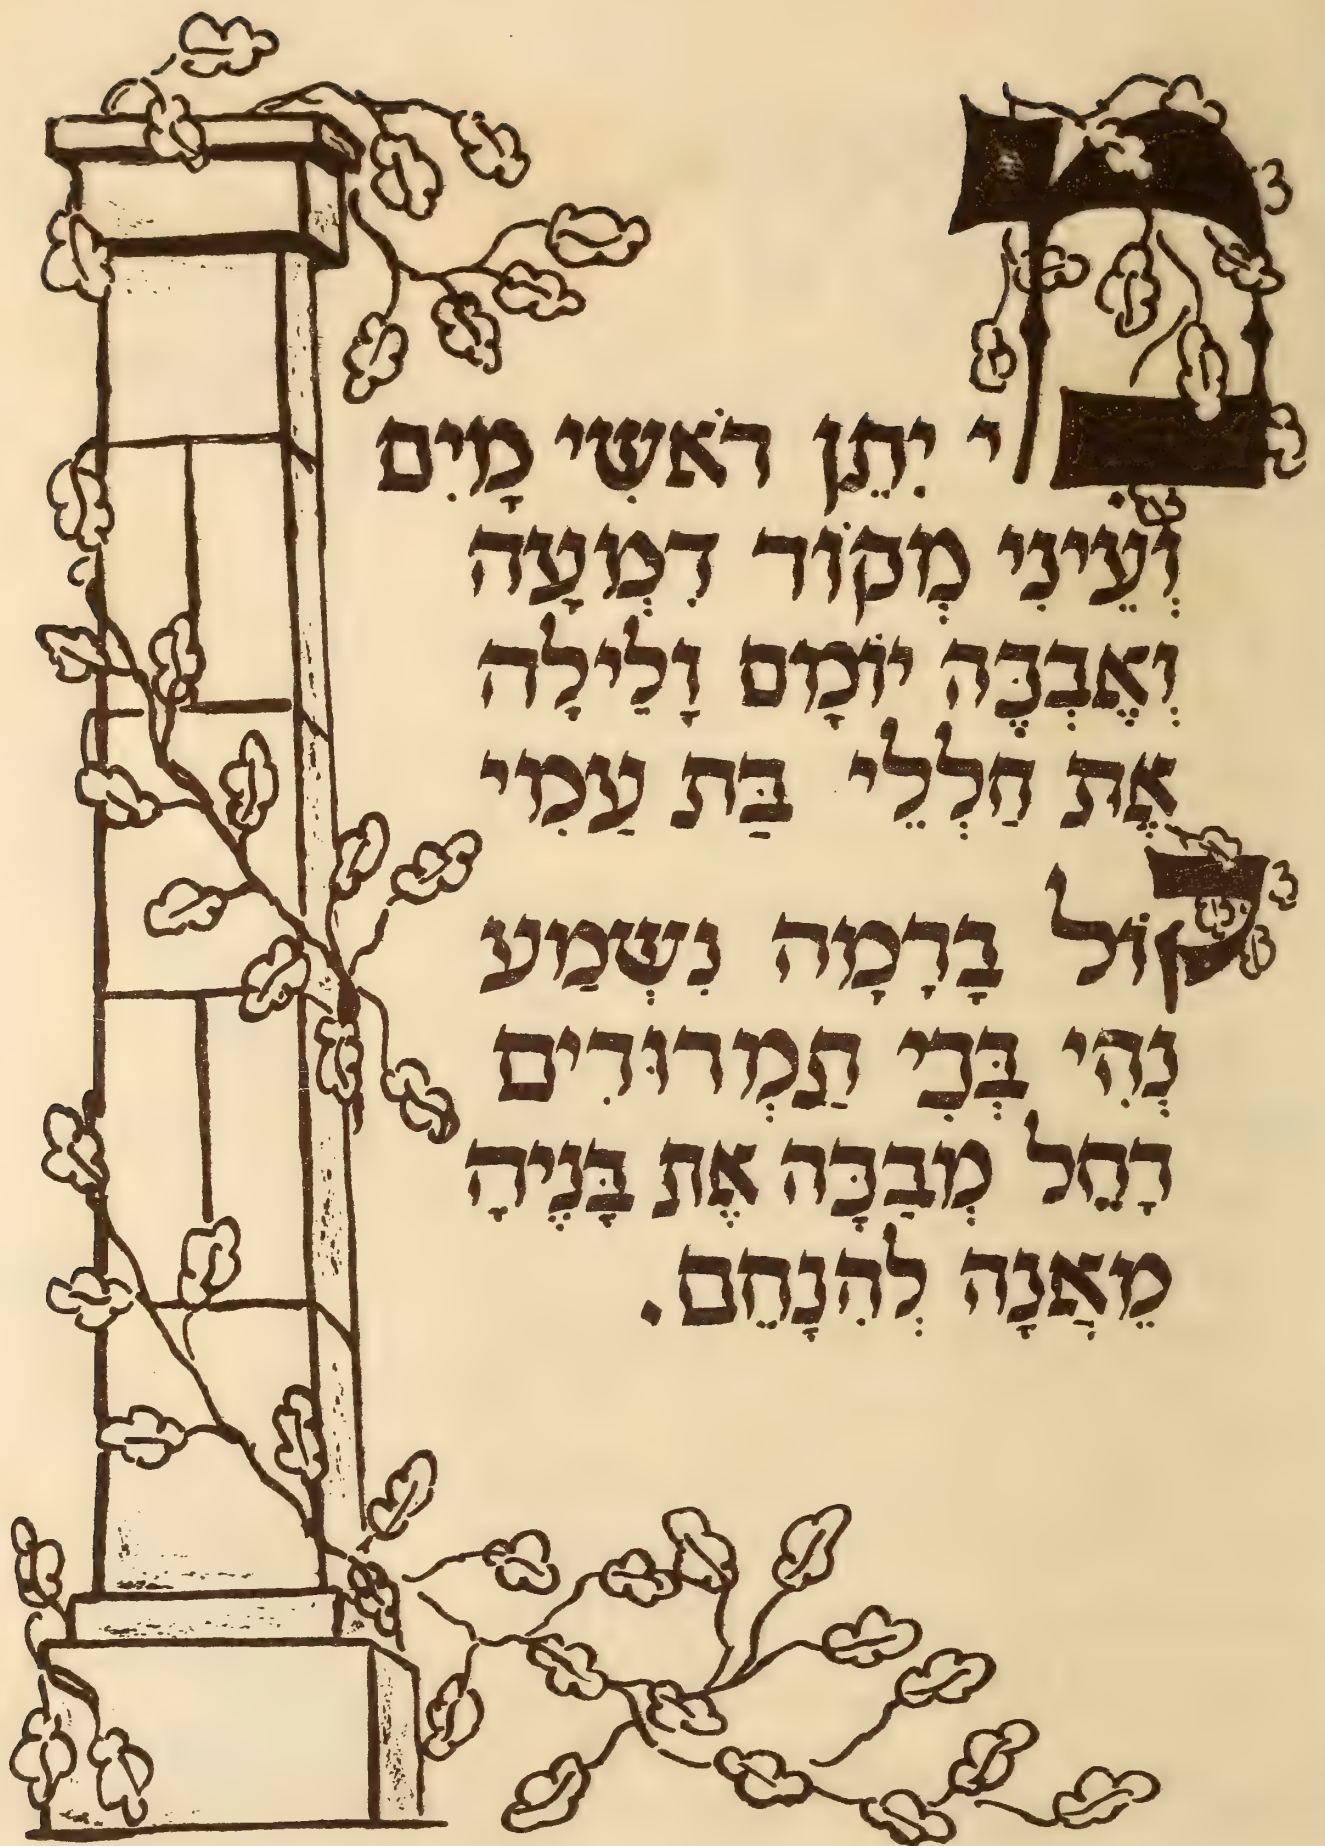 מִי יִתֵּן רֹאשִׁי מָיִם
וְעֵינִי מְקוֹר דִּמְעָה
וְאֶבְכֶּה יוֹמָם וָלַיְלָה
אֶת חַלְלֵי בַּת עַמִּי
קוֹל בְּרָמָה נִשְׁמָע
נְהִי בְּכִי תַמְרוּרִים
רָחֵל מְבַכָּה אֶת בָּנֶיהָ
מֵאֲנָה לְהִנָּחֵם.